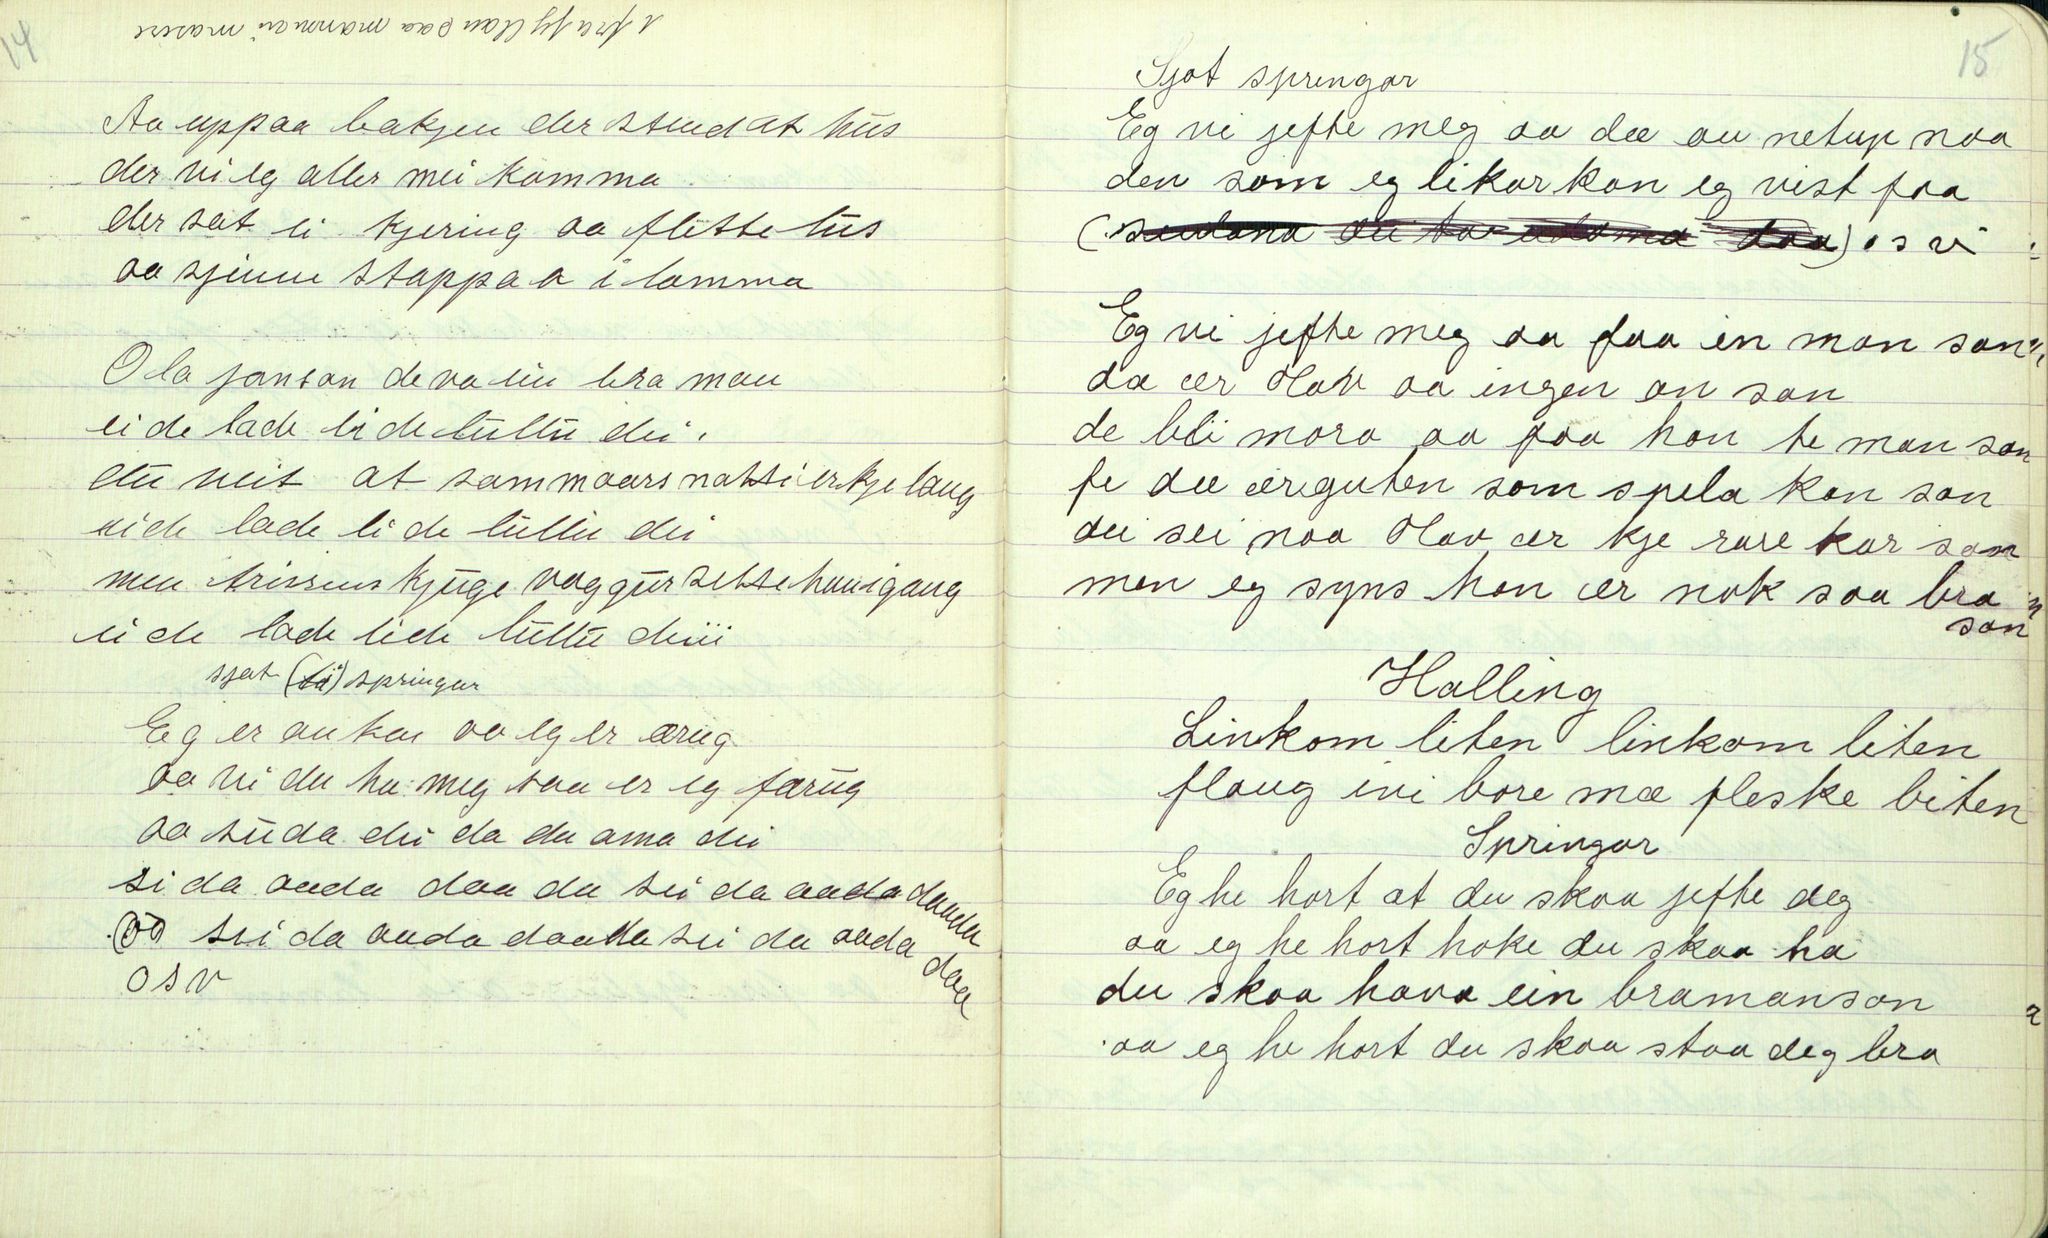 14
Aa uppaa bakjen der stend at hus
der vi eg aller mei komma
der sat ei kjering aa flette lus
aa sjinne stappaa i lomma
Ola janson de va ein bra man
ei de lade li de lullu dei.
du veit at sommaars natti er kje lang
ei de lade li de lullu dei
men kjuge vaggur sette hani gang
ei de lade li de lullu deiii
sjat springar
Eg er an kar aa eg er ærug
aa vi du ha meg saa er eg færug
aa suda dei da du ama dei
si da aada daa da sei da aada daada
sei da aada daada sei da aada daa
osv
15
Sjat springar
Eg vi jefte meg aa dæ au netup naa
den som eg likar kan eg vist faa
osv
Eg vi jefte meg aa faa en man san
dæ ær Olav aa ingen an san
de bli mora aa faa han te man san
fe dæ ær guten som spela kan san
dei sei naa Olav ær kje rare kar san
men eg syns han ær nok saa bra
san
Halling
Linkom liten linkom liten
flaug ivi bore mæ fleske biten
Springar
Eg he hort at du skaa jefte deg
aa eg he hort hoke du skaa ha
du skaa hava ein bramansan
aa eg he hort du skaa staa deg bra